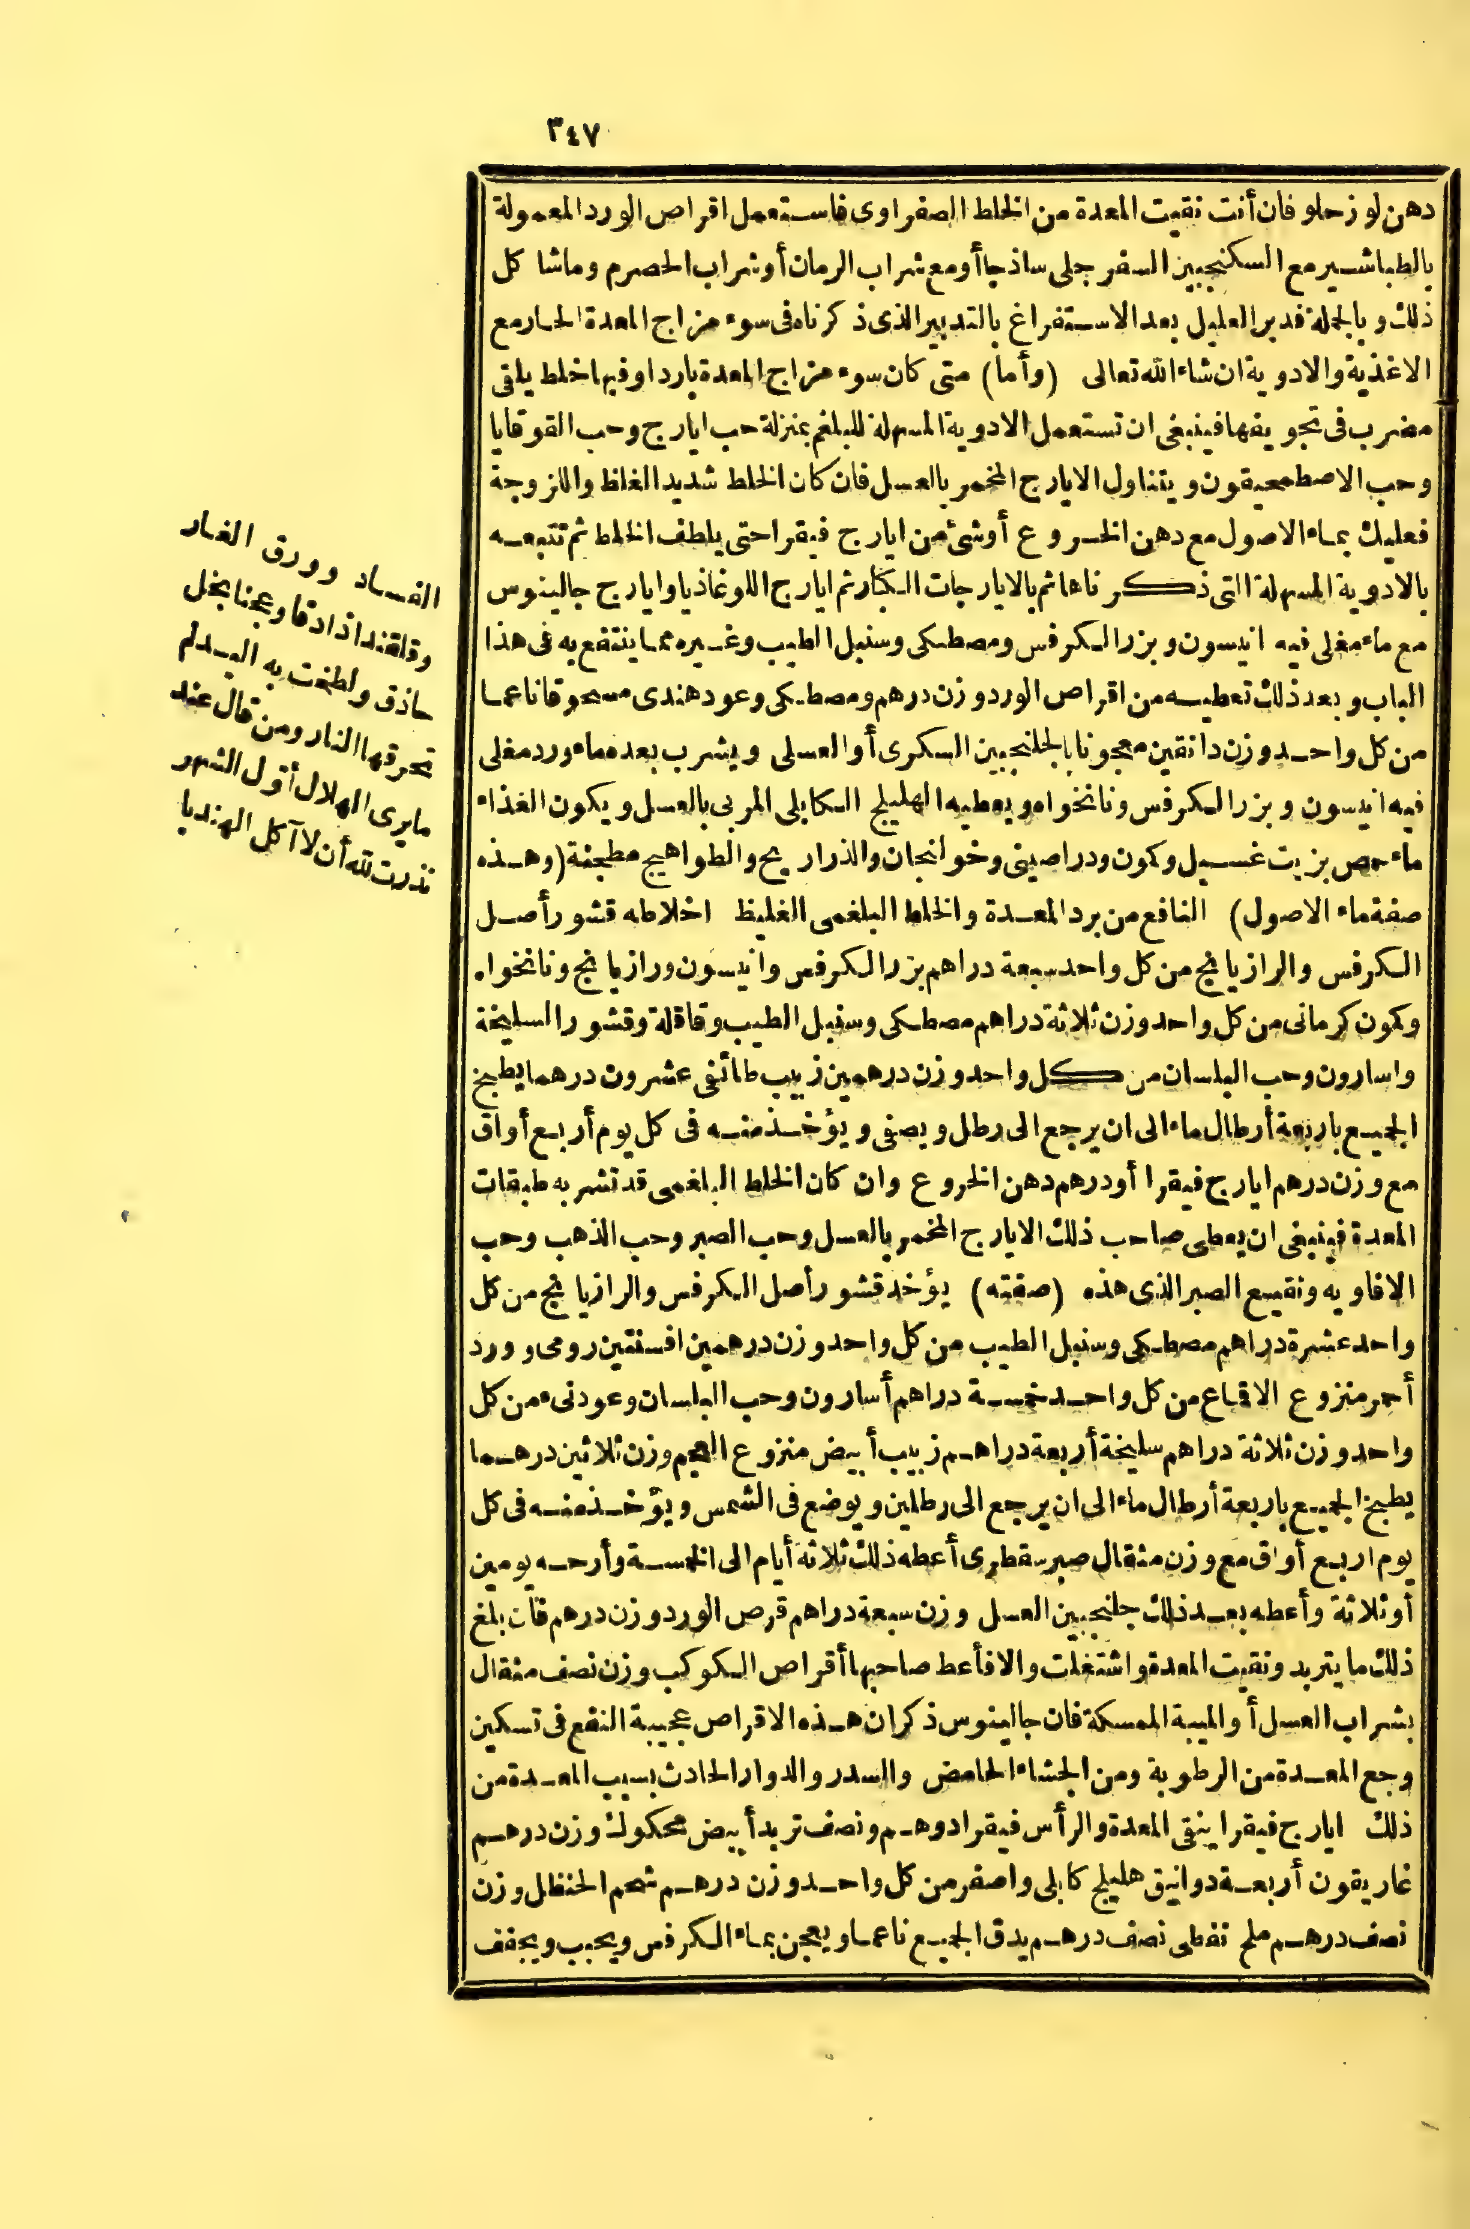 ٣٤٧
دهن لوز حلو فان أنت نقيت المعدة من الخلط الصفراوى فاستعمل اقراص الورد المعمولة
بالطباشير مع السكنجبين السفرجلى ساذجا أو مع شراب الرمان أو شراب الحصرم وماشا كل
ذلك وبالجملة فدبر العليل بعد الاستفراغ بالتدبير الذى ذكرناه فى سوء مزاج المعدة الحار مع
الاغذية والادوية ان شاء الله تعالى (وأما) متى كان سوء مزاج المعدة باردا وفيها خلط بلقى
مضرب فى تجويفها فينبغى ان تستعمل الادوية المسهلة للبلغم بمنزلة حب ايارج وحب القوقايا
وحب الاصطمعيقون ويتناول الايارج المخمر بالعسل فان كان الخلط شديد الغلظ واللزوجة
فعليك بماء الاصول مع دهن الخروع أو شئ من ايارج فيقرا حتى يلطف الخلط ثم تتبعه
بالادوية المسهلة التى ذكرناها ثم بالايارجات الكبار ثم ايارج اللوغاذيا وايارج جالينوس
مع ماء مغلى فيه انيسون وبزر الكرفس ومصطكى وسنبل الطيب وغيره مما ينتفع به فى هذا
الباب وبعد ذلك تعطيه من اقراص الورد وزن درهم ومصطكى وعود هندى مسحوقا ناعما
من كل واحد وزن دانقين معجونا بالجلنجبين السكرى أو العسلى ويشرب بعده ماء ورد مغلى
فيه انيسون وبزر الكرفس ونانخواه ويعطيه الهليلج الكابلى المربى بالعسل ويكون الغذاء
ماء حمص بزيت غسيل وكمون ودراصينى وخوانجان والذراريج والطواهيج مطجنة (وهذه
صفة ماء الاصول) النافع من برد المعدة والخلط البلغمى الغليظ اخلاطه قشور أصل
الكرفس والرازيانج من كل واحد سبعة دراهم بزر الكرفس وانيسون ورازيانج ونانخواه
وكمون كرمانى من كل واحد وزن ثلاثة دراهم مصطكى وسنبل الطيب وقاقلة وقشور السليخة
واسارون وحب البلسان من كل واحد وزن درهمين زبيب طائفى عشرون درهما يطبخ
الجميع باربعة أرطال ماء الى ان يرجع الى رطل ويصفى ويؤخذ منه فى كل يوم أربع أواق
مع وزن درهم ايارج فيقرا أو درهم دهن الخروع وان كان الخلط البلغمى قد تشربه طبقات
المعدة فينبغى ان يعطى صاحب ذلك الايارج المخمر بالعسل وحب الصبر وحب الذهب وحب
الافاويه ونقيع الصبر الذى هذه (صفته) يؤخذ قشور أصل الكرفس والرازيانج من كل
واحد عشرة دراهم مصطكى وسنبل الطيب من كل واحد وزن درهمين افسنتين رومى وورد
أحمر منزوع الاقماع من كل واحد خمسة دراهم أسارون وحب البلسان وعود نىء من كل
واحد وزن ثلاثة دراهم سليخة أربعة دراهم زبيب أبيض منزوع العجم وزن ثلاثين درهما
يطبخ الجميع باربعة أرطال ماء الى ان يرجع الى رطلين ويوضع فى الشمس ويؤخذ منه فى كل
يوم اربع أواق مع وزن مثقال صبر سقطرى أعطه ذلك ثلاثة أيام الى الخمسة وأرحه يومين
أو ثلاثة وأعطه بعد ذلك جلنجبين العسل وزن سبعة دراهم قرص الورد وزن درهم فان بلغ
ذلك ما يتريد ونقيت المعدة واشتغلت والا فأعط صاحبها أقراص الكوكب وزن نصف مثقال
بشراب العسل أو الميبة الممسكة فان جالينوس ذكر ان هذه الاقراص عجيبة النفع فى تسكين
وجع المعدة من الرطوبة ومن الجشاء الحامض والسدر والدوار الحادث بسبب المعدة من
ذلك ايارج فيقرا ينقى المعدة والرأس فيقرا دوهم ونصف تربد أبيض محكوك وزن درهم
غاريقون أربعة دوانيق هليلج كابلى واصفر من كل واحد وزن درهم شحم الحنظل وزن
نصف درهم ملح نفطى نصف درهم يدق الجميع ناعما ويعجن بماء الكرفس ويحبب ويجفف
الفساد وورق الغار
وقلقند اذا دقا وعجنا بخل
حاذق ولطخت به اليد لم
تحرقها النار ومن قال عند
ما يرى الهلال أول الشهر
نذرت لله أن لا آكل الهندبا